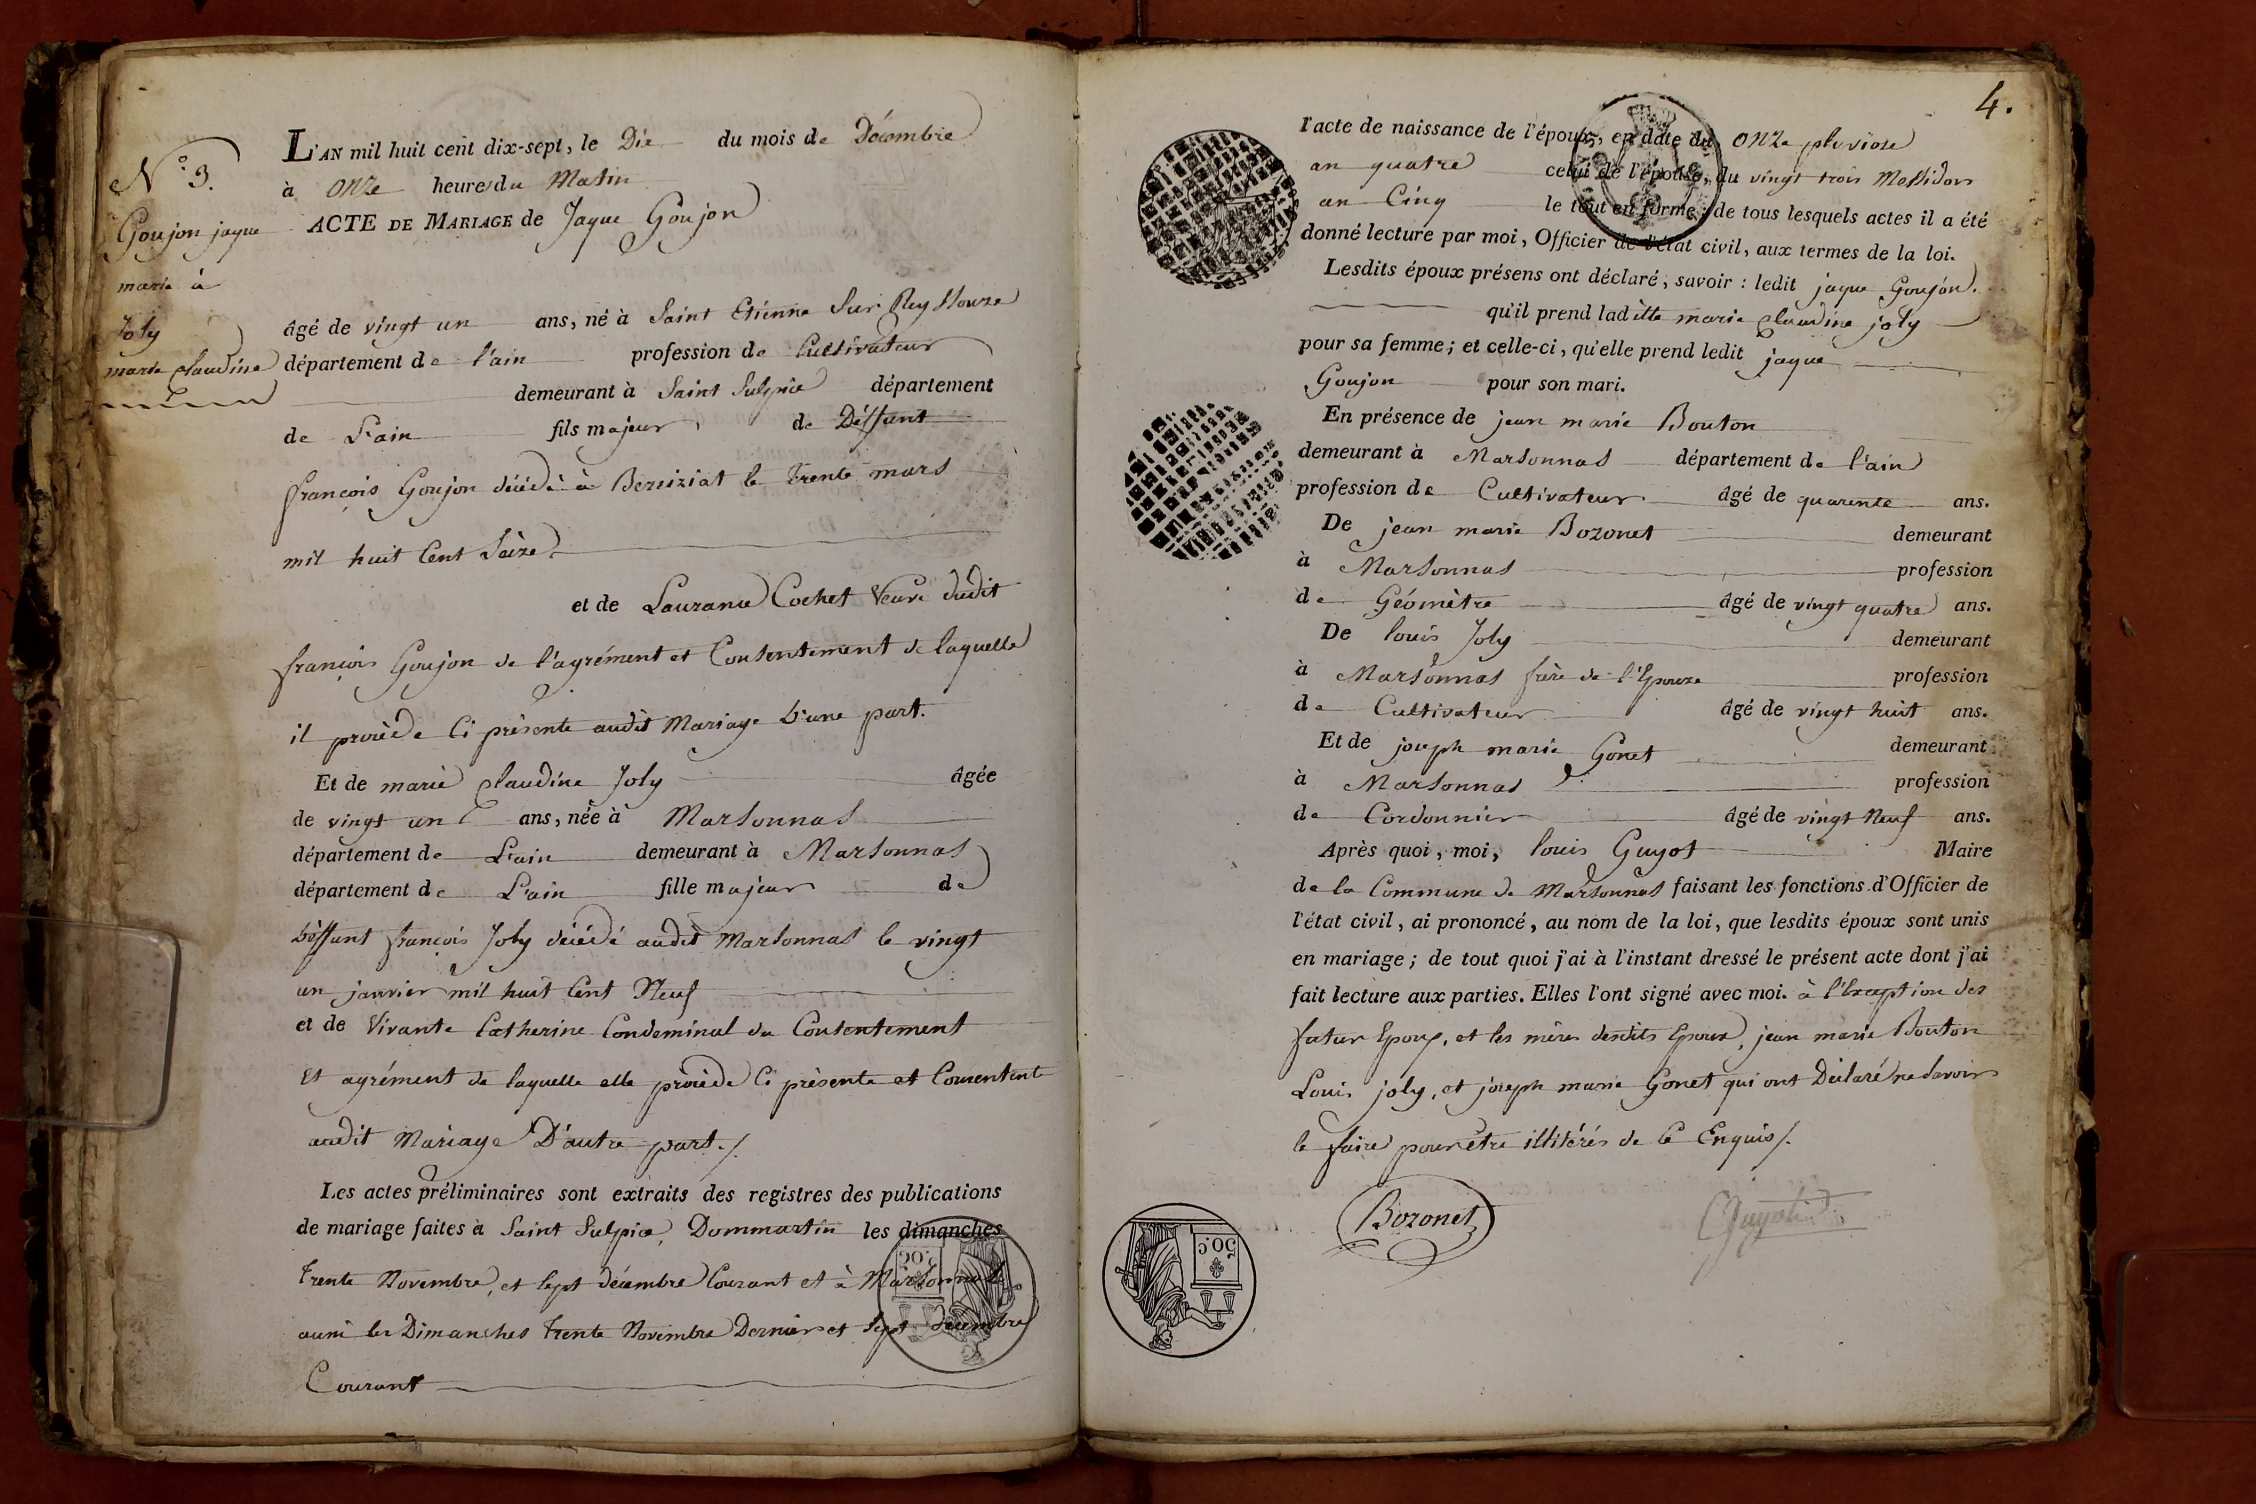 N.° 3.
Goujon jaque
marié à
Joly
marie claudine
L'AN mil huit cent dix-sept, le Dix du mois de Décembre
à onze heures du Matin
ACTE DE MARIAGE de Jaque Goujon
âgé de vingt un ans, né à Saint Etienne Sur Reyssouze
département de l'ain profession de Cultivateur
demeurant à Saint Sulpice département
de L'ain fils majeur de Déffunt
françois Goujon décédé à Bereiziat le trente mars
mil huit Cent Seize
et de Laurance Cochet Veuve dudit
françois Goujon de l'agrément et Consentement de laquelle
il procède Ci présente audit Mariage D'une part.
Et de marie claudine Joly âgée
de vingt un ans, née à Marsonnas
département de L'ain demeurant à Marsonnas
département de L'ain fille majeur de
Déffunt françois Joly décédé audit Marsonnas le vingt
un janvier mil huit Cent Neuf
et de Vivante Catherine Condeminal du Consentement
Et agrément de laquelle elle procède Ci présente et Consentente
audit Mariage D'autre part./.
Les actes préliminaires sont extraits des registres des publications
de mariage faites à Saint Sulpice, Dommartin les dimanches
trente Novembre, et Sept décembre Courant et à Marsonnas
aussi les Dimanches trente Novembre Dernier et Sept décembre
Courant
4.
l'acte de naissance de l'époux, en date du onze pluviose
an quatre celui de l'épouse, du vingt trois Messidors
an Cinq le tout en forme: de tous lesquels actes il a été
donné lecture par moi, Officier de l'état civil, aux termes de la loi.
Lesdits époux présens ont déclaré, savoir: ledit jaque Goujon.
qu'il prend ladite marie claudine joly
pour sa femme; et celle-ci, qu'elle prend ledit jaque
Goujon pour son mari.
En présence de jean marie Bouton
demeurant à Marsonnas département de l'ain
profession de Cultivateur âgé de quarente ans.
De jean marie Bozonet demeurant
à Marsonnas profession
de Géomètre âgé de vingt quatre ans.
De louis Joly demeurant
à Marsonnas frère de l'Epouse profession
de Cultivateur âgé de vingt huit ans.
Et de joseph marie Gonet demeurant
à Marsonnas profession
de Cordonnier âgé de vingt Neuf ans.
Après quoi, moi, louis Guyot Maire
de la Commune de Marsonnas faisant les fonctions d'Officier de
l'état civil, ai prononcé, au nom de la loi, que lesdits époux sont unis
en mariage; de tout quoi j'ai à l'instant dressé le présent acte dont j'ai
fait lecture aux parties. Elles l'ont signé avec moi. à l'Exception des
futur Epoux, et les mères desdits Epoux, jean marie Bouton
Louis joly, et joseph marie Gonet qui ont Déclaré ne Savoir
le faire pour être illitérés de Ce Enquis/.
Bozonet
50c.